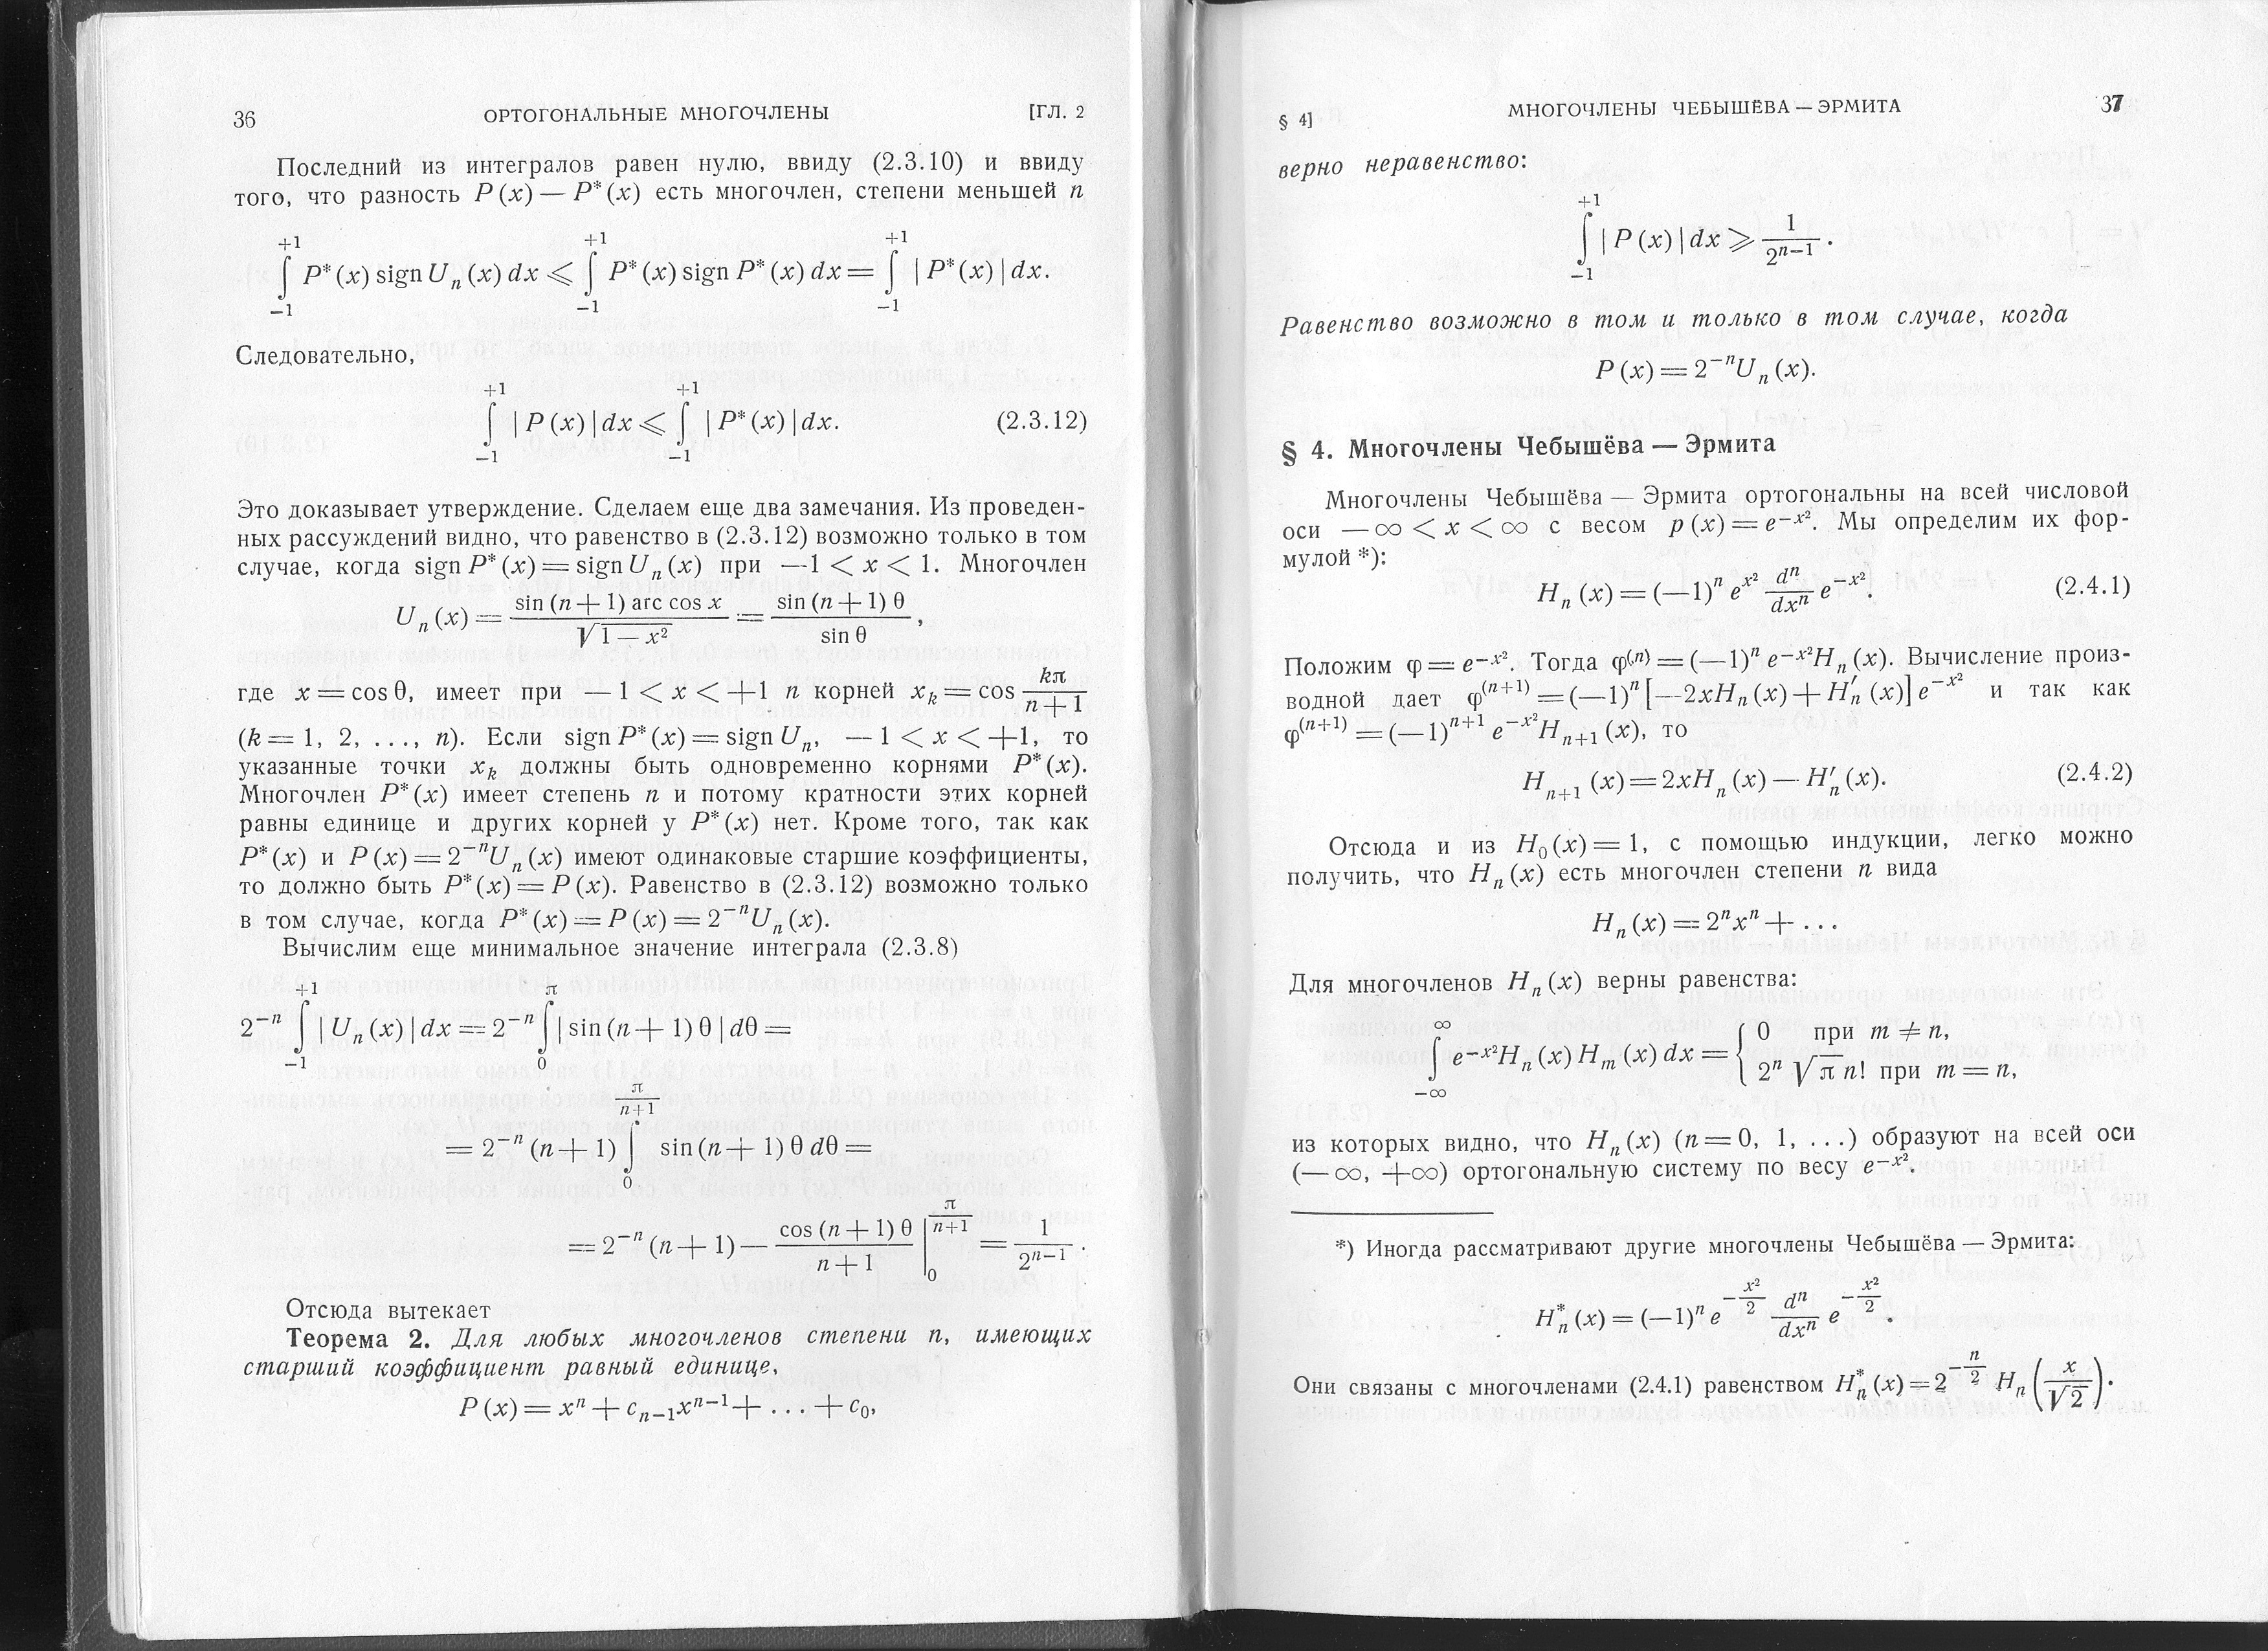 36 ОРТОГОНАЛЬНЫЕ МНОГОЧЛЕНЫ [ГЛ. 2
Последний из интегралов равен нулю, ввиду (2.3.10) и ввиду
того, что разность P (x) — P* (x) есть многочлен, степени меньшей n
∫_{−1}^{+1} P* (x) sign U_n (x) dx ⩽ ∫_{−1}^{+1} P* (x) sign P* (x) dx = ∫_{−1}^{+1} | P* (x) | dx.
Следовательно,
∫_{−1}^{+1} | P (x) | dx ⩽ ∫_{−1}^{+1} | P* (x) | dx. (2.3.12)
Это доказывает утверждение. Сделаем еще два замечания. Из проведен-
ных рассуждений видно, что равенство в (2.3.12) возможно только в том
случае, когда sign P* (x) = sign U_n (x) при —1 < x < 1. Многочлен
U_n (x) = \frac{sin (n + 1) arc cos x}{√(1 — x²)} = \frac{sin (n + 1) θ}{sin θ},
где x = cos θ, имеет при — 1 < x < +1 n корней x_k = cos \frac{kπ}{n + 1}
(k = 1, 2, ..., n). Если sign P* (x) = sign U_n, — 1 < x < +1, то
указанные точки x_k должны быть одновременно корнями P* (x).
Многочлен P* (x) имеет степень n и потому кратности этих корней
равны единице и других корней у P* (x) нет. Кроме того, так как
P* (x) и P (x) = 2^{−n}U_n (x) имеют одинаковые старшие коэффициенты,
то должно быть P* (x) = P (x). Равенство в (2.3.12) возможно только
в том случае, когда P* (x) = P (x) = 2^{−n}U_n (x).
Вычислим еще минимальное значение интеграла (2.3.8)
2^{−n} ∫_{−1}^{+1} | U_n (x) | dx = 2^{−n} ∫_0^π | sin (n + 1) θ | dθ =
= 2^{−n} (n + 1) ∫_0^{\frac{π}{n+1}} sin (n + 1) θ dθ =
= 2^{−n} (n + 1) — \frac{cos (n + 1) θ}{n + 1} |_0^{\frac{π}{n+1}} = \frac{1}{2^{n−1}}.
Отсюда вытекает
Теорема 2. Для любых многочленов степени n, имеющих
старший коэффициент равный единице,
P (x) = x^n + c_{n−1}x^{n−1} + ... + c_0,
§ 4] МНОГОЧЛЕНЫ ЧЕБЫШЁВА — ЭРМИТА 37
верно неравенство:
∫_{−1}^{+1} | P (x) | dx ⩾ \frac{1}{2^{n−1}}.
Равенство возможно в том и только в том случае, когда
P (x) = 2^{−n}U_n (x).
§ 4. Многочлены Чебышёва — Эрмита
Многочлены Чебышёва — Эрмита ортогональны на всей числовой
оси — ∞ < x < ∞ с весом p (x) = e^{−x²}. Мы определим их фор-
мулой *):
H_n (x) = (—1)^n e^{x²} \frac{d^n}{dx^n} e^{−x²}. (2.4.1)
Положим φ = e^{−x²}. Тогда φ^{(n)} = (—1)^n e^{−x²}H_n (x). Вычисление произ-
водной дает φ^{(n+1)} = (—1)^n [—2xH_n (x) + H′_n (x)] e^{−x²} и так как
φ^{(n+1)} = (—1)^{n+1} e^{−x²}H_{n+1} (x), то
H_{n+1} (x) = 2xH_n (x) — H′_n (x). (2.4.2)
Отсюда и из H_0 (x) = 1, с помощью индукции, легко можно
получить, что H_n (x) есть многочлен степени n вида
H_n (x) = 2^n x^n + ...
Для многочленов H_n (x) верны равенства:
∫_{−∞}^{∞} e^{−x²}H_n (x) H_m (x) dx = { 0 при m ≠ n,
2^n √π n! при m = n,
из которых видно, что H_n (x) (n = 0, 1, ...) образуют на всей оси
(— ∞, +∞) ортогональную систему по весу e^{−x²}.
*) Иногда рассматривают другие многочлены Чебышёва — Эрмита:
H*_n (x) = (—1)^n e^{−\frac{x²}{2}} \frac{d^n}{dx^n} e^{−\frac{x²}{2}}.
Они связаны с многочленами (2.4.1) равенством H*_n (x) = 2^{−\frac{n}{2}} H_n (\frac{x}{√2}).